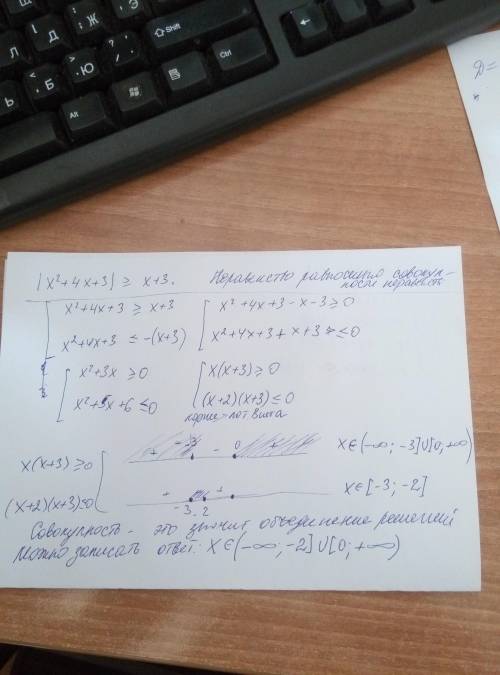 Щ
Л
Д
Ж
Э
Ь
< Б
> Ю
?
Shift
Ctrl
Alt
←
D =
|x²+4x+3| ≥ x+3. Неравенство равносильно совокуп-
ности неравенств
[ x²+4x+3 ≥ x+3 [ x²+4x+3-x-3 ≥ 0
x²+4x+3 ≤ -(x+3) x²+4x+3+x+3 ≤ 0
[ x²+3x ≥ 0 [ x(x+3) ≥ 0
x²+5x+6 ≤ 0 (x+2)(x+3) ≤ 0
корни - по т Виета
x(x+3) ≥ 0 [ + -3 - 0 + x∈(-∞; -3]∪[0; +∞)
(x+2)(x+3) ≤ 0 + - + x∈[-3; -2]
-3 -2
Совокупность - это значит объединение решений
Можно записать ответ: x∈(-∞; -2]∪[0; +∞)